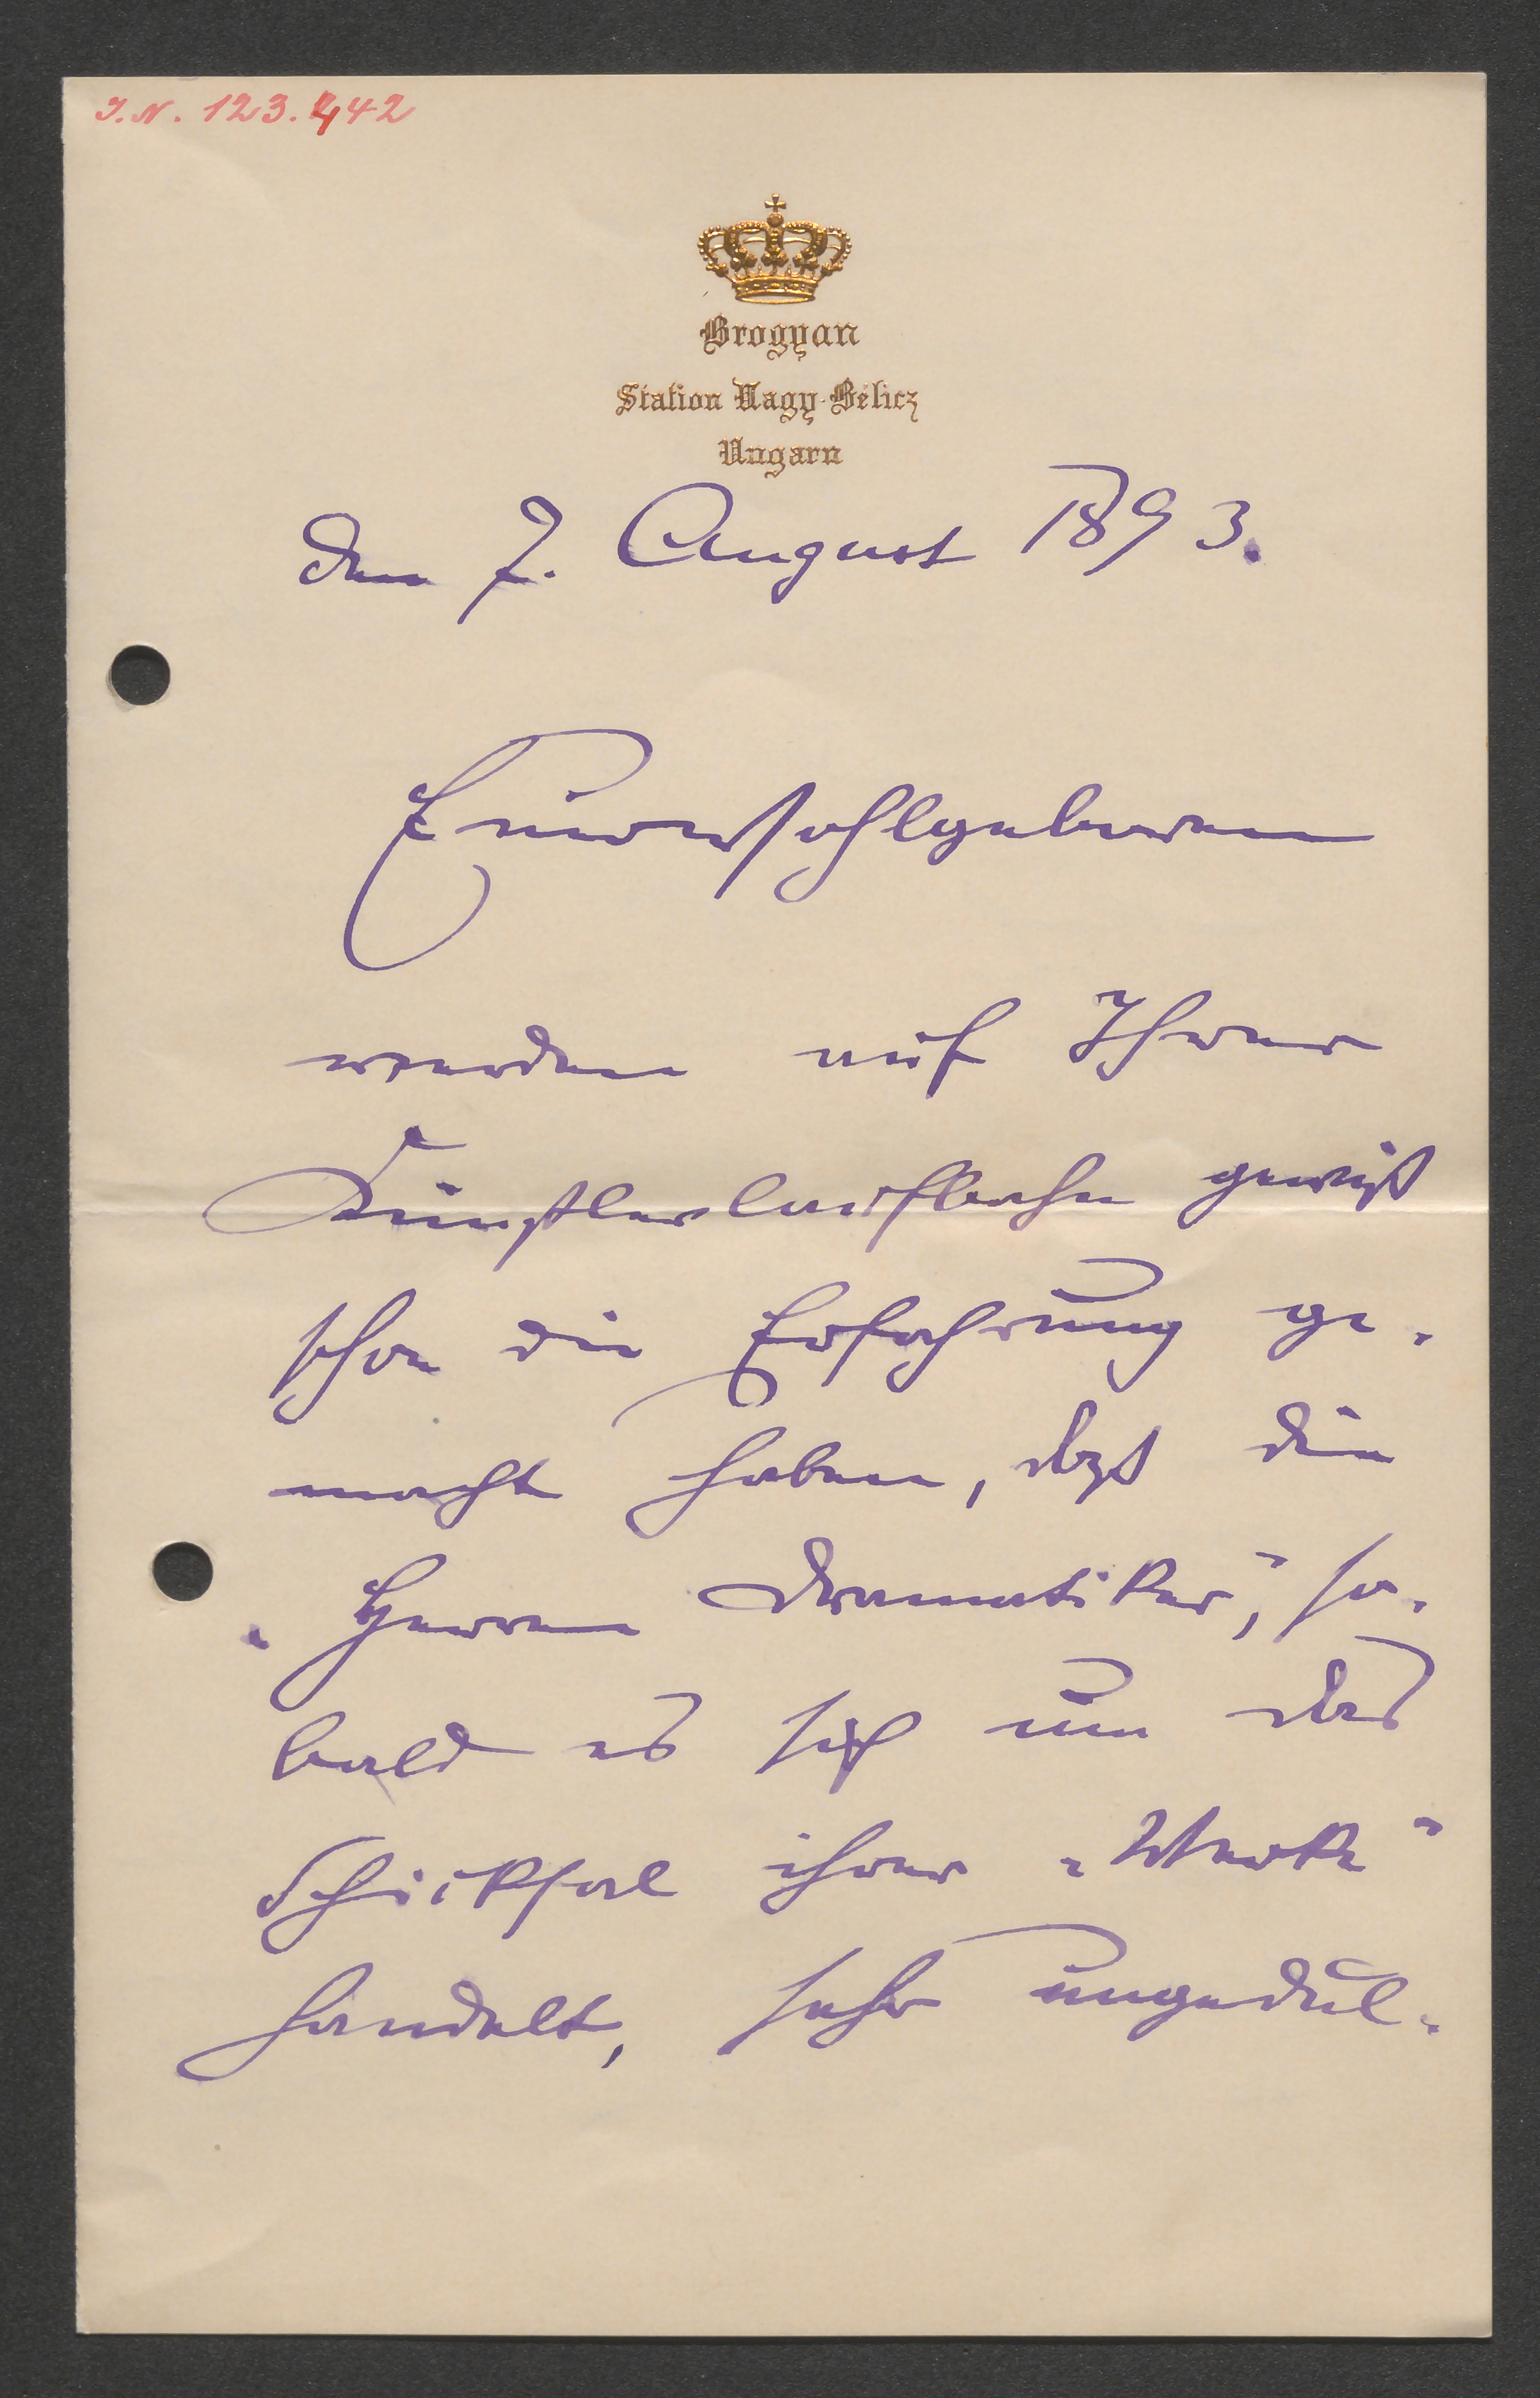 I.N. 123.442
Brogyan
Station Nagy-Bélicz
Ungarn
den 7. August 1893.
Euerwohlgeboren
werden auf Ihrer
Künstlerlaufbahn gewiß
schon die Erfahrung ge-
macht haben, daß die
„Herren Dramatiker“, so-
bald es sich um das
Schicksal ihrer „Werke“
handelt, sehr ungedul-